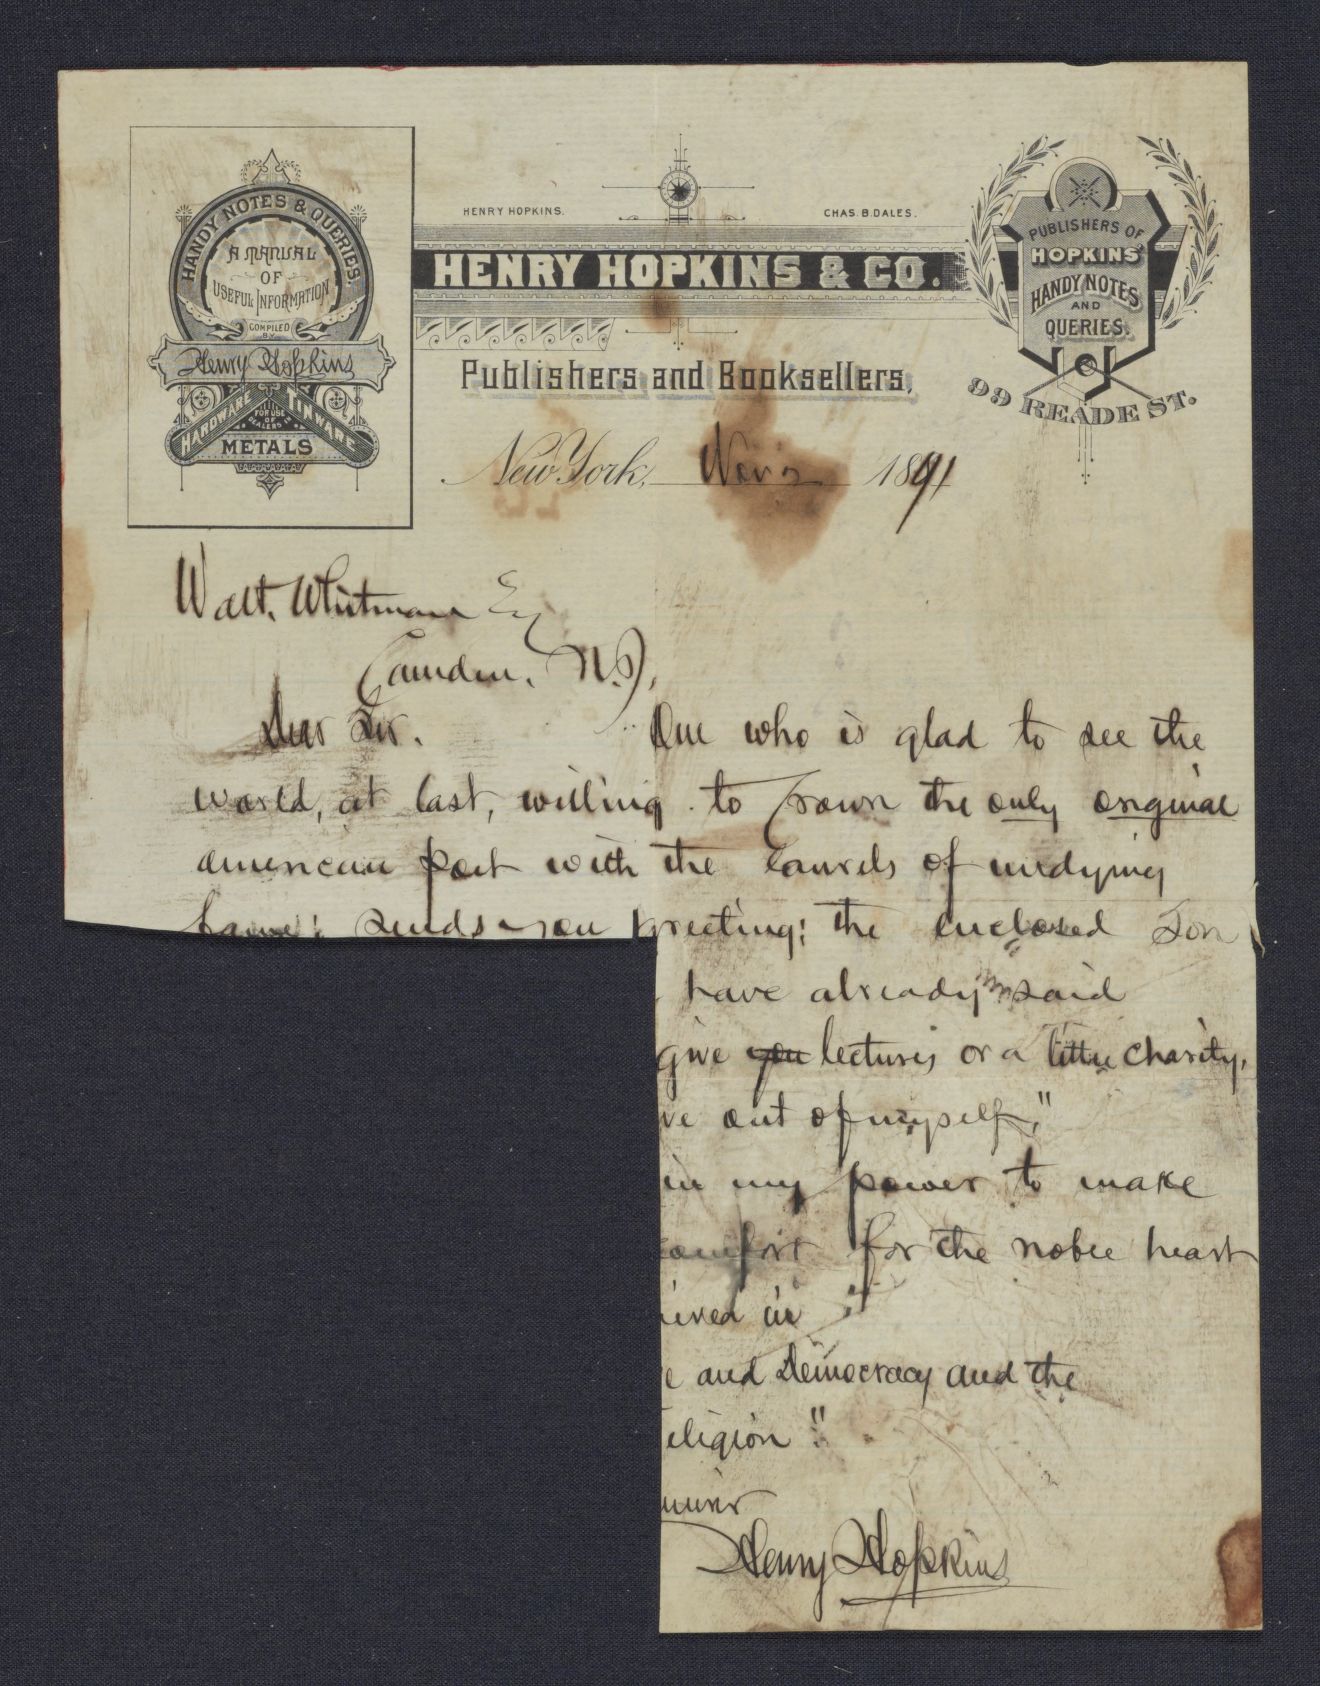 HANDY NOTES & QUERIES
A MANUAL
OF
USEFUL INFORMATION
COMPILED
BY
Henry Hopkins
HARDWARE
FOR USE
OF
DEALERS IN
TINWARE
METALS
HENRY HOPKINS.
CHAS. B. DALES.
HENRY HOPKINS & CO.
Publishers and Booksellers,
PUBLISHERS OF
HOPKINS'
HANDY NOTES
AND
QUERIES.
99 READE ST.
New York, Nov 2 1891
Walt. Whitman Esq
Camden. N.J,
Dear Sir. One who is glad to see the
world, at last, willing to crown the only original
american poet with the laurels of undying
fame; sends you greeting; the enclosed
have already said
give you lectures or a little charity,
ve out of myself,"
in my power to make
comfort for the noble heart
in
e and Democracy and the
eligion "
mirer
Henry Hopkins